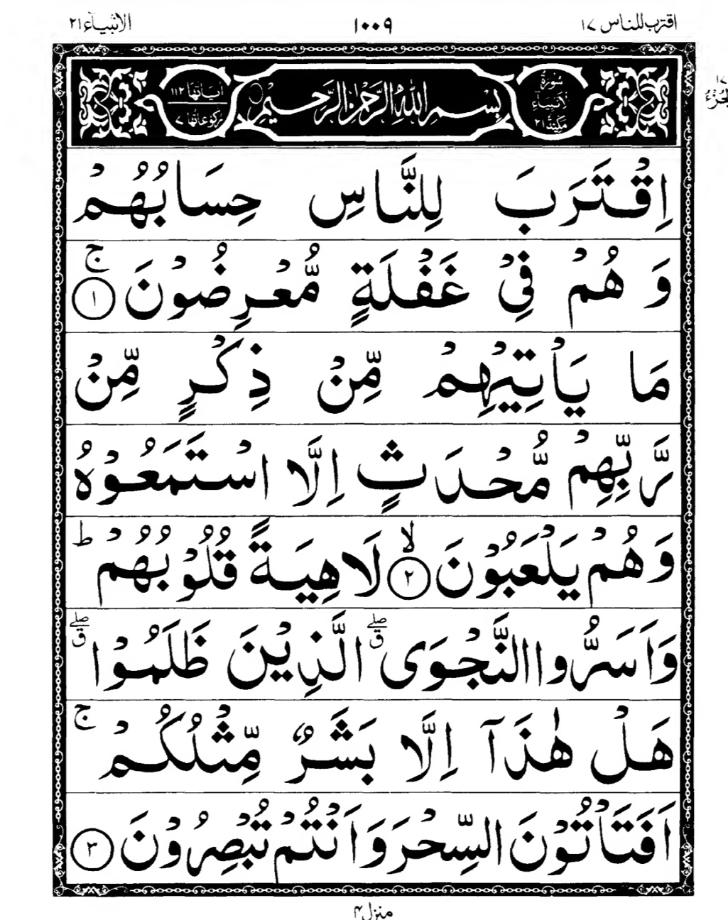 اقترب للناس ١٧
١٠٠٩
الانبياء ٢١
١٧
الجزء
سُورَةُ الْاَنْبِيَاءِ مَكِّيَّةٌ ٢١
بِسْمِ اللّٰهِ الرَّحْمٰنِ الرَّحِيْمِ
اٰيَاتُهَا ١١٢
رُكُوْعَاتُهَا ٧
اِقْتَرَبَ لِلنَّاسِ حِسَابُهُمْ
وَ هُمْ فِيْ غَفْلَةٍ مُّعْرِضُوْنَ ۚ ﴿١﴾
مَا يَاْتِيْهِمْ مِّنْ ذِكْرٍ مِّنْ
رَّبِّهِمْ مُّحْدَثٍ اِلَّا اسْتَمَعُوْهُ
وَهُمْ يَلْعَبُوْنَ ۙ ﴿٢﴾ لَاهِيَةً قُلُوْبُهُمْ ؕ
وَاَسَرُّوا النَّجْوَى ۖق الَّذِيْنَ ظَلَمُوْا ۖق
هَلْ هٰذَآ اِلَّا بَشَرٌ مِّثْلُكُمْ ۚ
اَفَتَاْتُوْنَ السِّحْرَ وَاَنْتُمْ تُبْصِرُوْنَ ﴿٣﴾
منزل ٤